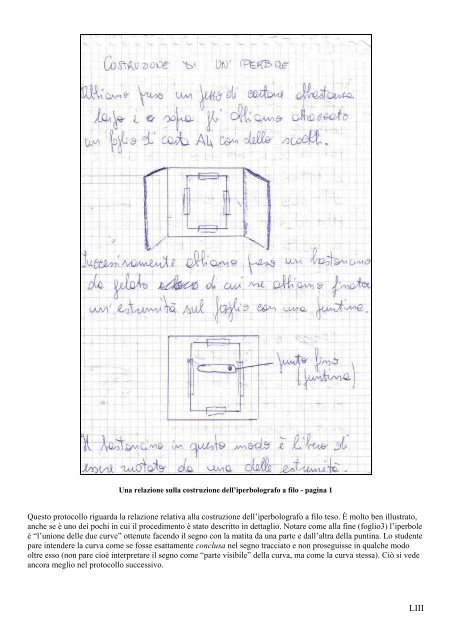 COSTRUZIONE DI UN' IPERBOLE
Abbiamo preso un pezzo di cartone abbastanza
largo e sopra gli abbiamo attaccato
un foglio di carta A4 con dello scotch.
Successivamente abbiamo preso un bastoncino
da gelato di cui ne abbiamo fissata
un'estremità sul foglio con una puntina.
punto fisso
(puntina)
Il bastoncino in questo modo è libero di
essere ruotato da una delle estremità.
Una relazione sulla costruzione dell'iperbolografo a filo - pagina 1
Questo protocollo riguarda la relazione relativa alla costruzione dell'iperbolografo a filo teso. È molto ben illustrato,
anche se è uno dei pochi in cui il procedimento è stato descritto in dettaglio. Notare come alla fine (foglio3) l'iperbole
è "l'unione delle due curve" ottenute facendo il segno con la matita da una parte e dall'altra della puntina. Lo studente
pare intendere la curva come se fosse esattamente conclusa nel segno tracciato e non proseguisse in qualche modo
oltre esso (non pare cioè interpretare il segno come "parte visibile" della curva, ma come la curva stessa). Ciò si vede
ancora meglio nel protocollo successivo.
LIII